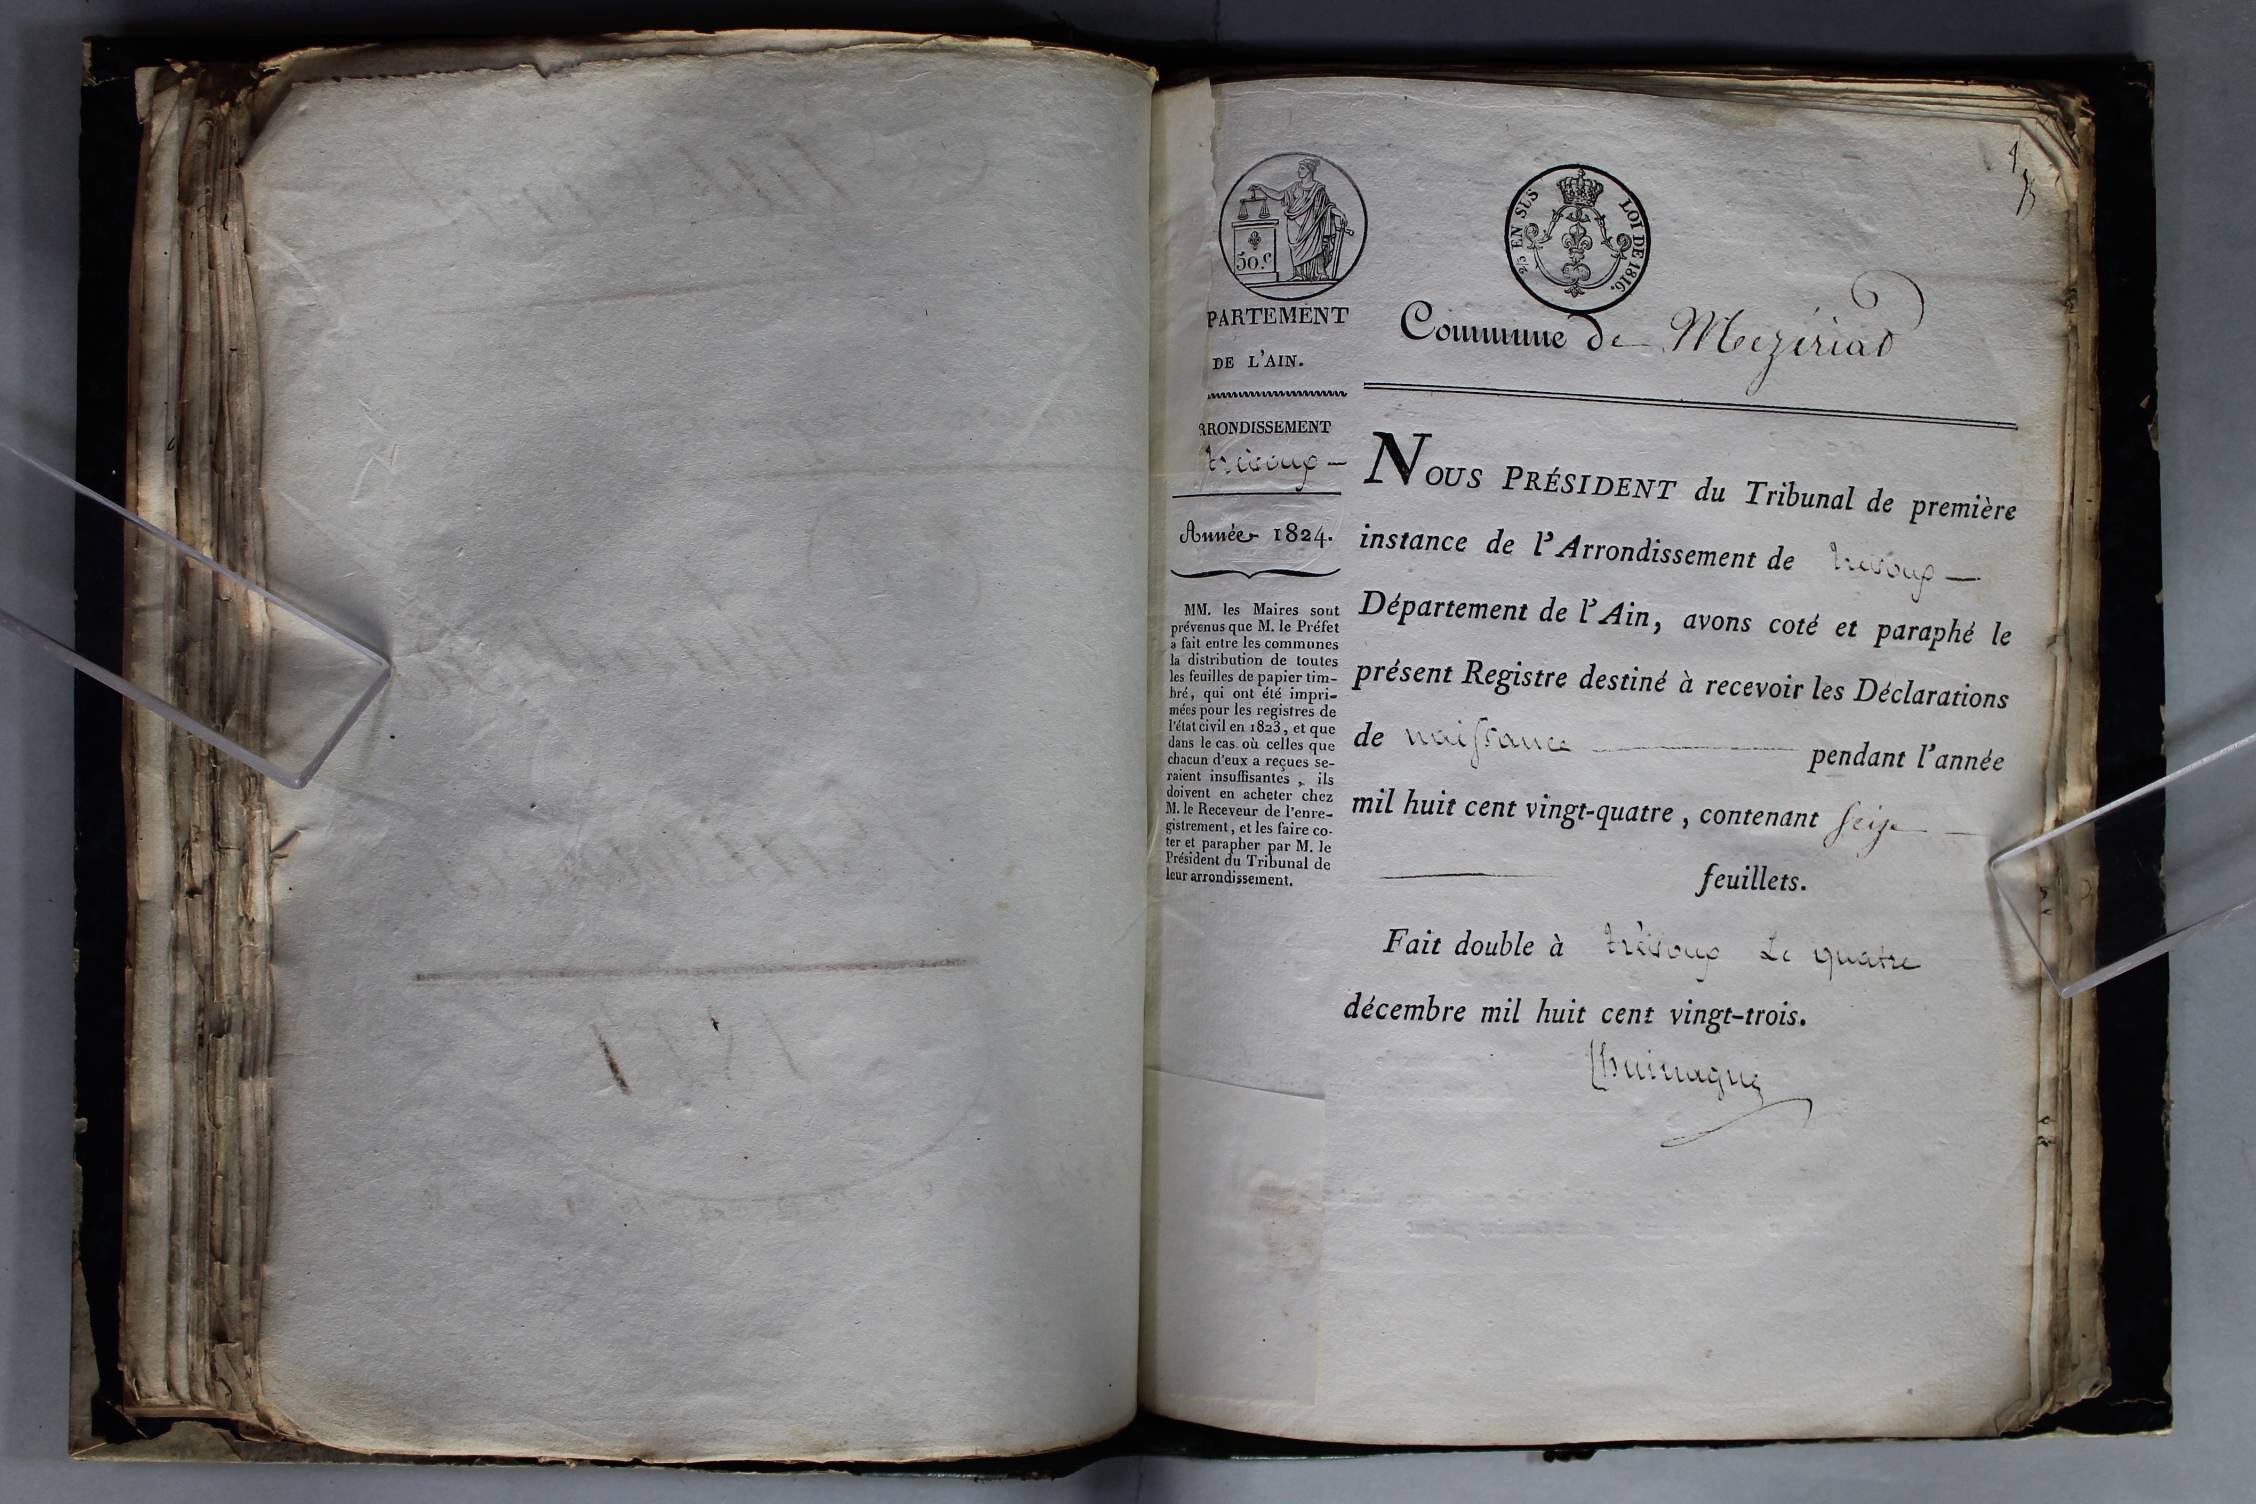 50.c
2/5 EN SUS LOI DE 1816.
PARTEMENT
DE L'AIN.
RRONDISSEMENT
trévoux —
Année 1824.
MM. les Maires sont
prévenus que M. le Préfet
a fait entre les communes
la distribution de toutes
les feuilles de papier tim-
bré, qui ont été impri-
mées pour les registres de
l'état civil en 1823, et que
dans le cas où celles que
chacun d'eux a reçues se-
raient insuffisantes, ils
doivent en acheter chez
M. le Receveur de l'enre-
gistrement, et les faire co-
ter et parapher par M. le
Président du Tribunal de
leur arrondissement.
Commune de Meziriat
NOUS PRÉSIDENT du Tribunal de première
instance de l'Arrondissement de trévoux —
Département de l'Ain, avons coté et paraphé le
présent Registre destiné à recevoir les Déclarations
de naissance — pendant l'année
mil huit cent vingt-quatre, contenant seize —
— feuillets.
Fait double à trévoux Le quatre
décembre mil huit cent vingt-trois.